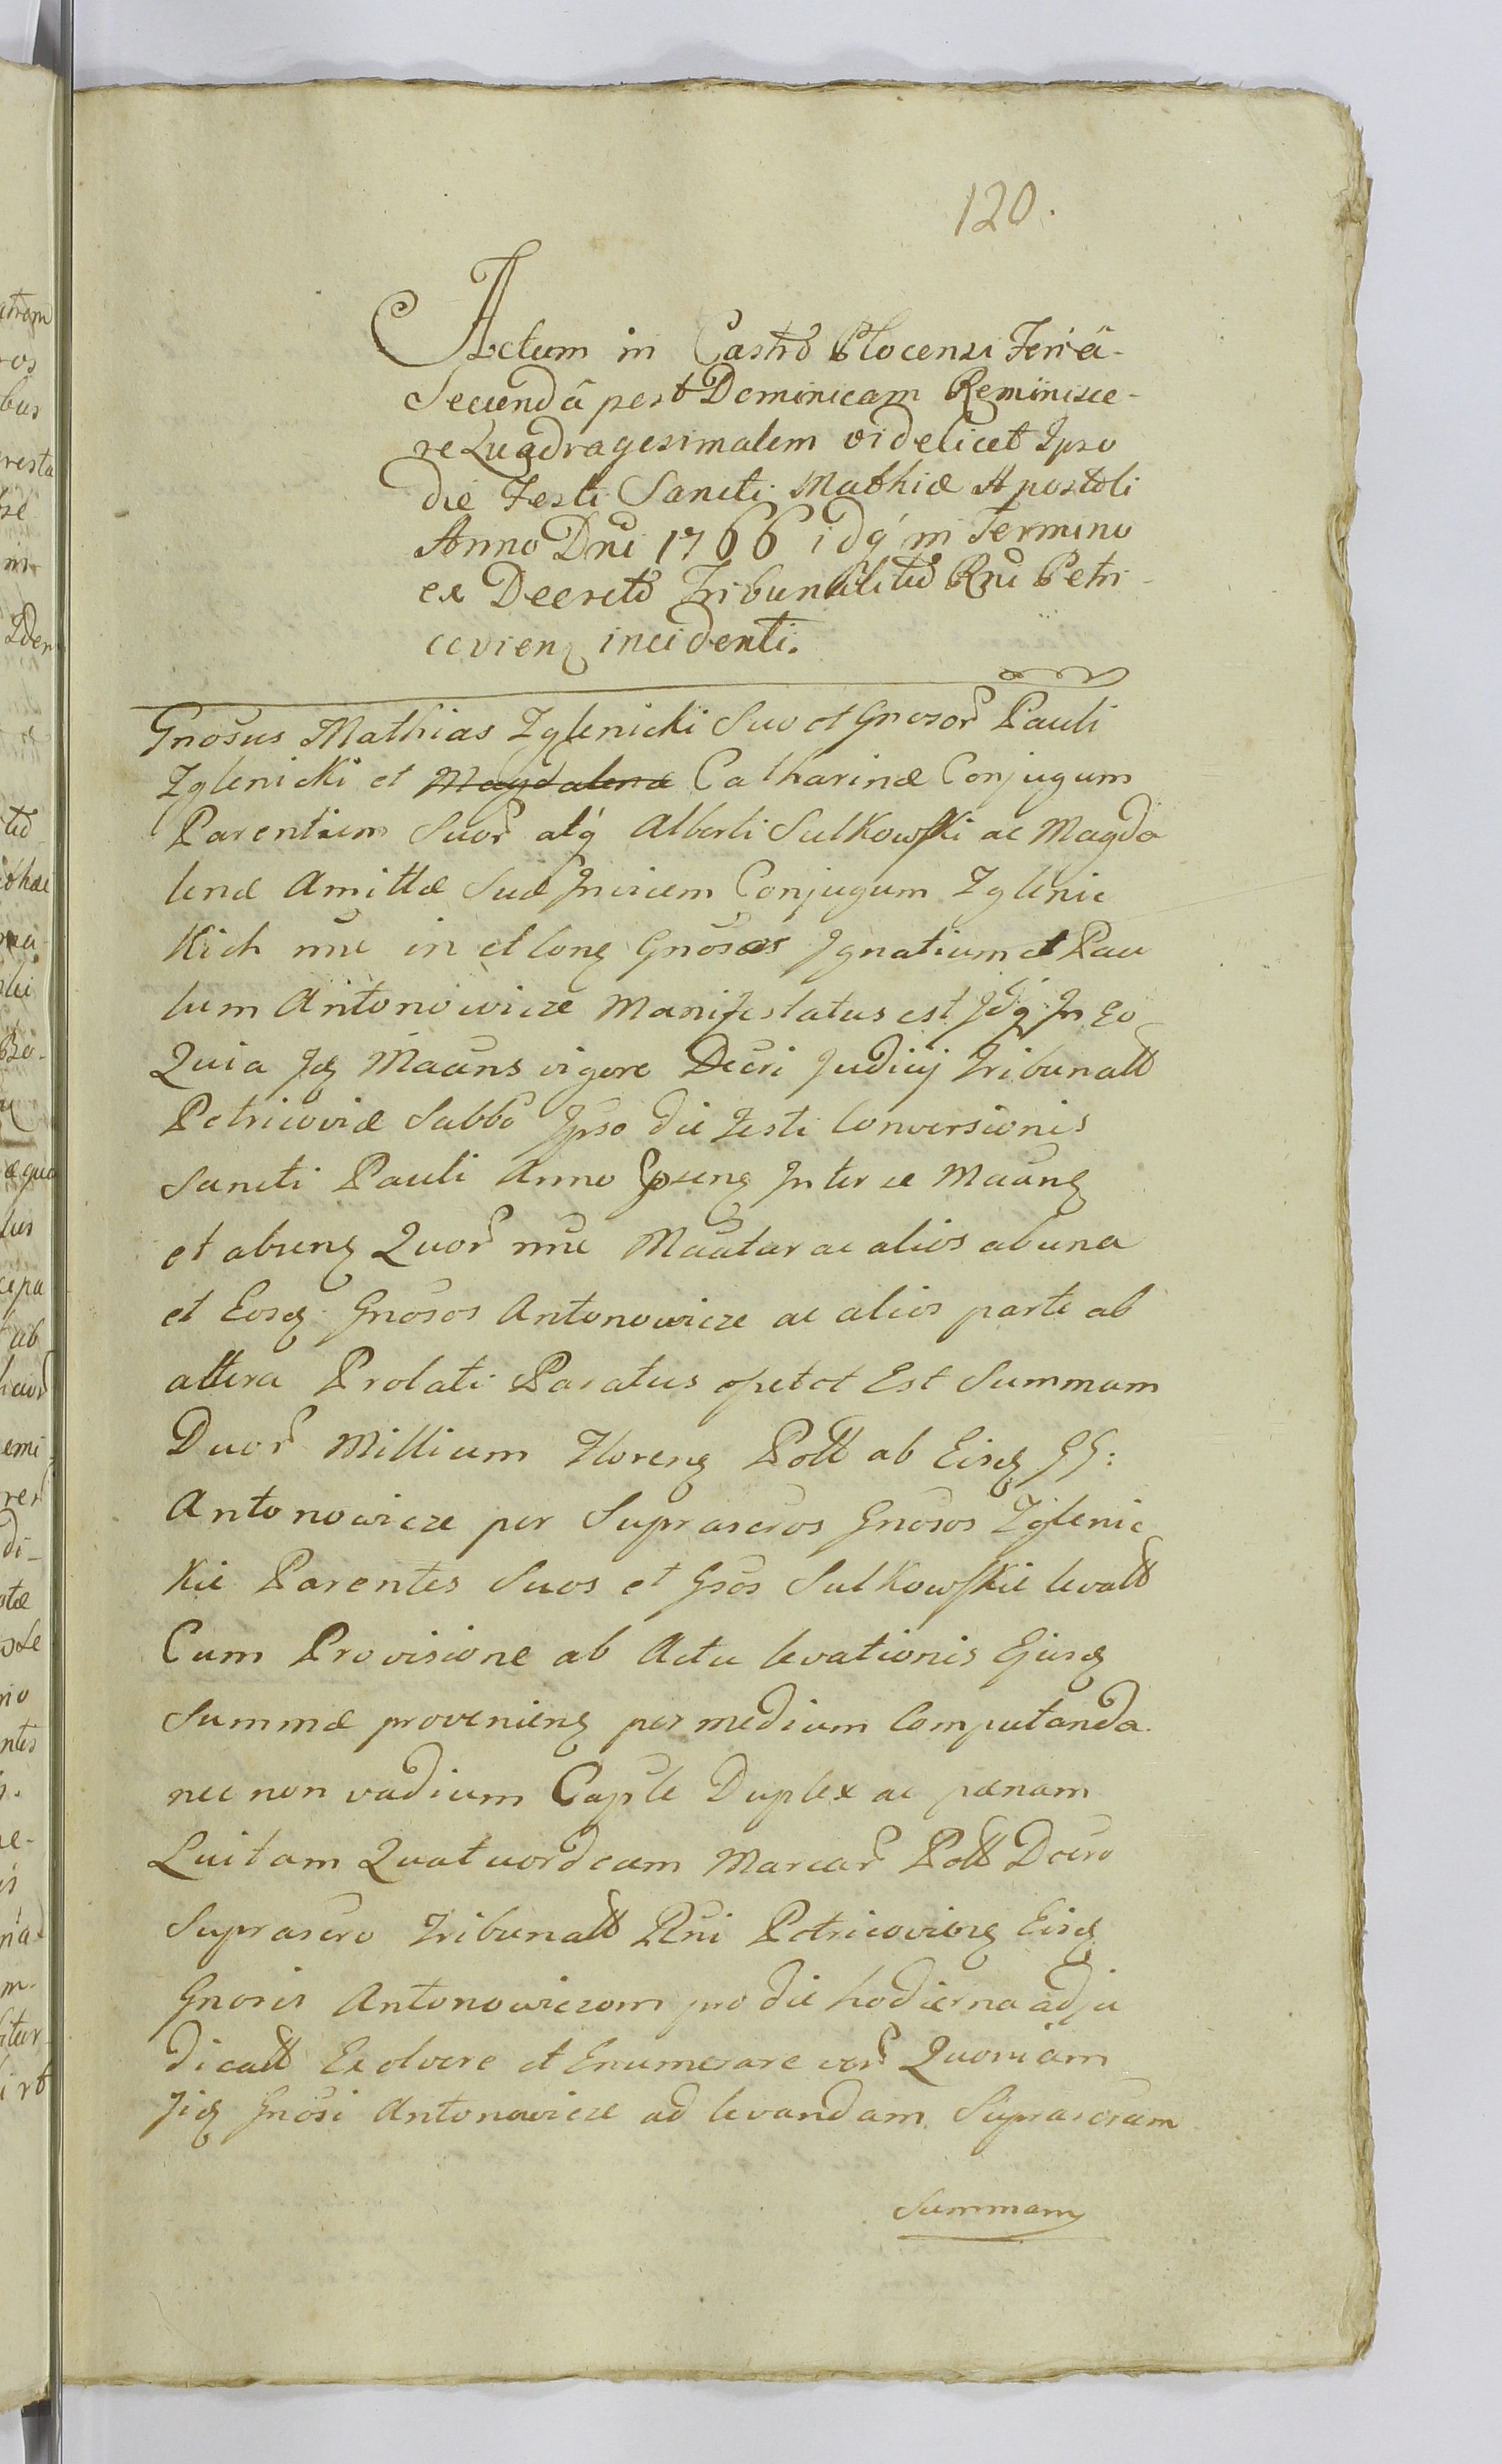 120.
Actum in Castro Plocensi Feriâ
Secundâ post Dominicam Reminisce-
re Quadragesimalem videlicet Ipso
die Festi Sancti Mathiæ Apostoli
Anno Dni 1766 idq́ in Termino
ex Decreto Tribunalitio Rni Petri-
covien incidenti.
Gnosus Mathias Zglenicki Suo et Gnosor Pauli
Zglenicki et Magdalenæ Catharinæ Conjugum
Parentum Suor atq́ Alberti Sulkowski ac Magda
lenæ Amittæ Suæ Invicem Conjugum Zglenic
kich nne in et Conq Gnosos Ignatium et Pau
lum Antonowicze Manifestatus est Idq́ In Eo
Quia Idq Maans vigore Decri Judicij Tribunalt
Petricoviæ Sabbo Ipso die Festi Conversionis
Sancti Pauli Anno Psenq Inter se Maanq
et absenq Quor nne Maatur ac alios ab una
et Eosq Gnosos Antonowicze ac alios parte ab
altera Prolati Paratus est Summam
Duor Millium Florenq Poll ab Eisq GG:
Antonowicze per Suprascros Gnosos Zglenic
kie Parentes Suos et Gsos Sulkowskie levatt
Cum Provisione ab Actu levationis Ejusq
Summæ provenienq per medium Computanda
nec non vadium Caple Duplex ac pænam
Luitam Quatuordecim Marcar Poll Decro
Suprascro Tribunalt Rni Petricovienq Eisq
Gnosis Antonowiczom pro die hodierna adju
dicatt Exolvere et Enumerare ver Quoniam
Iiq Gnosi Antonowicze ad levandam Suprascram
Summam